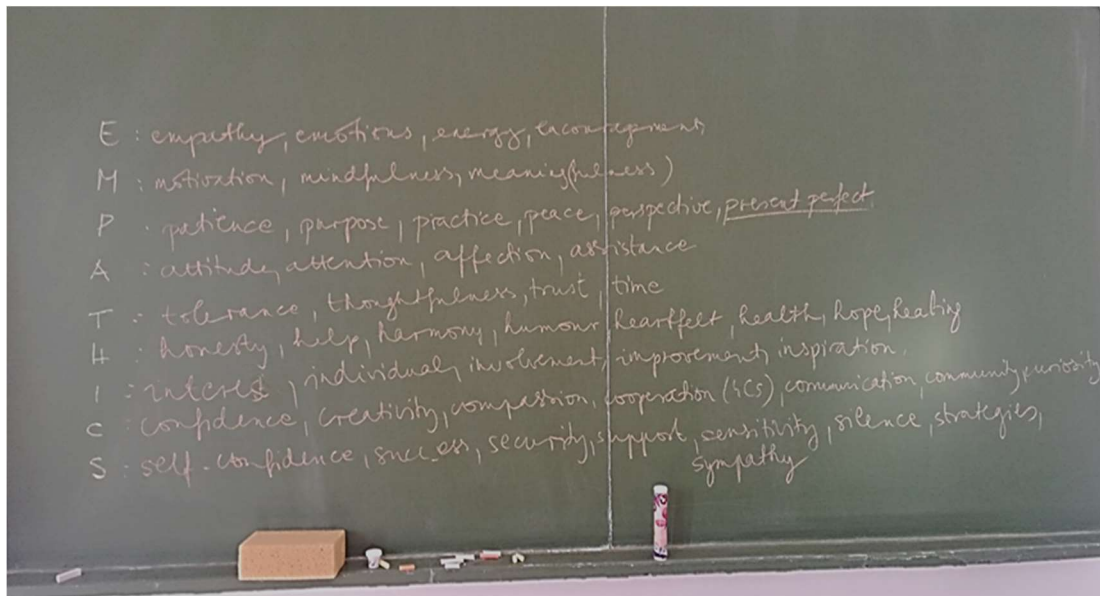 E : empathy, emotions, energy, encouragement,
M : motivation, mindfulness, meaning(fulness)
P : patience, purpose, practice, peace, perspective, present perfect
A : attitude, attention, affection, assistance
T : tolerance, thoughtfulness, trust, time
H : honesty, help, harmony, humour, heartfelt, health, hope, healing
I : interest, individual, involvement, improvement, inspiration,
C : confidence, creativity, compassion, cooperation (4Cs), communication, community, curiosity
S : self-confidence, success, security, support, sensitivity, silence, strategies,
sympathy